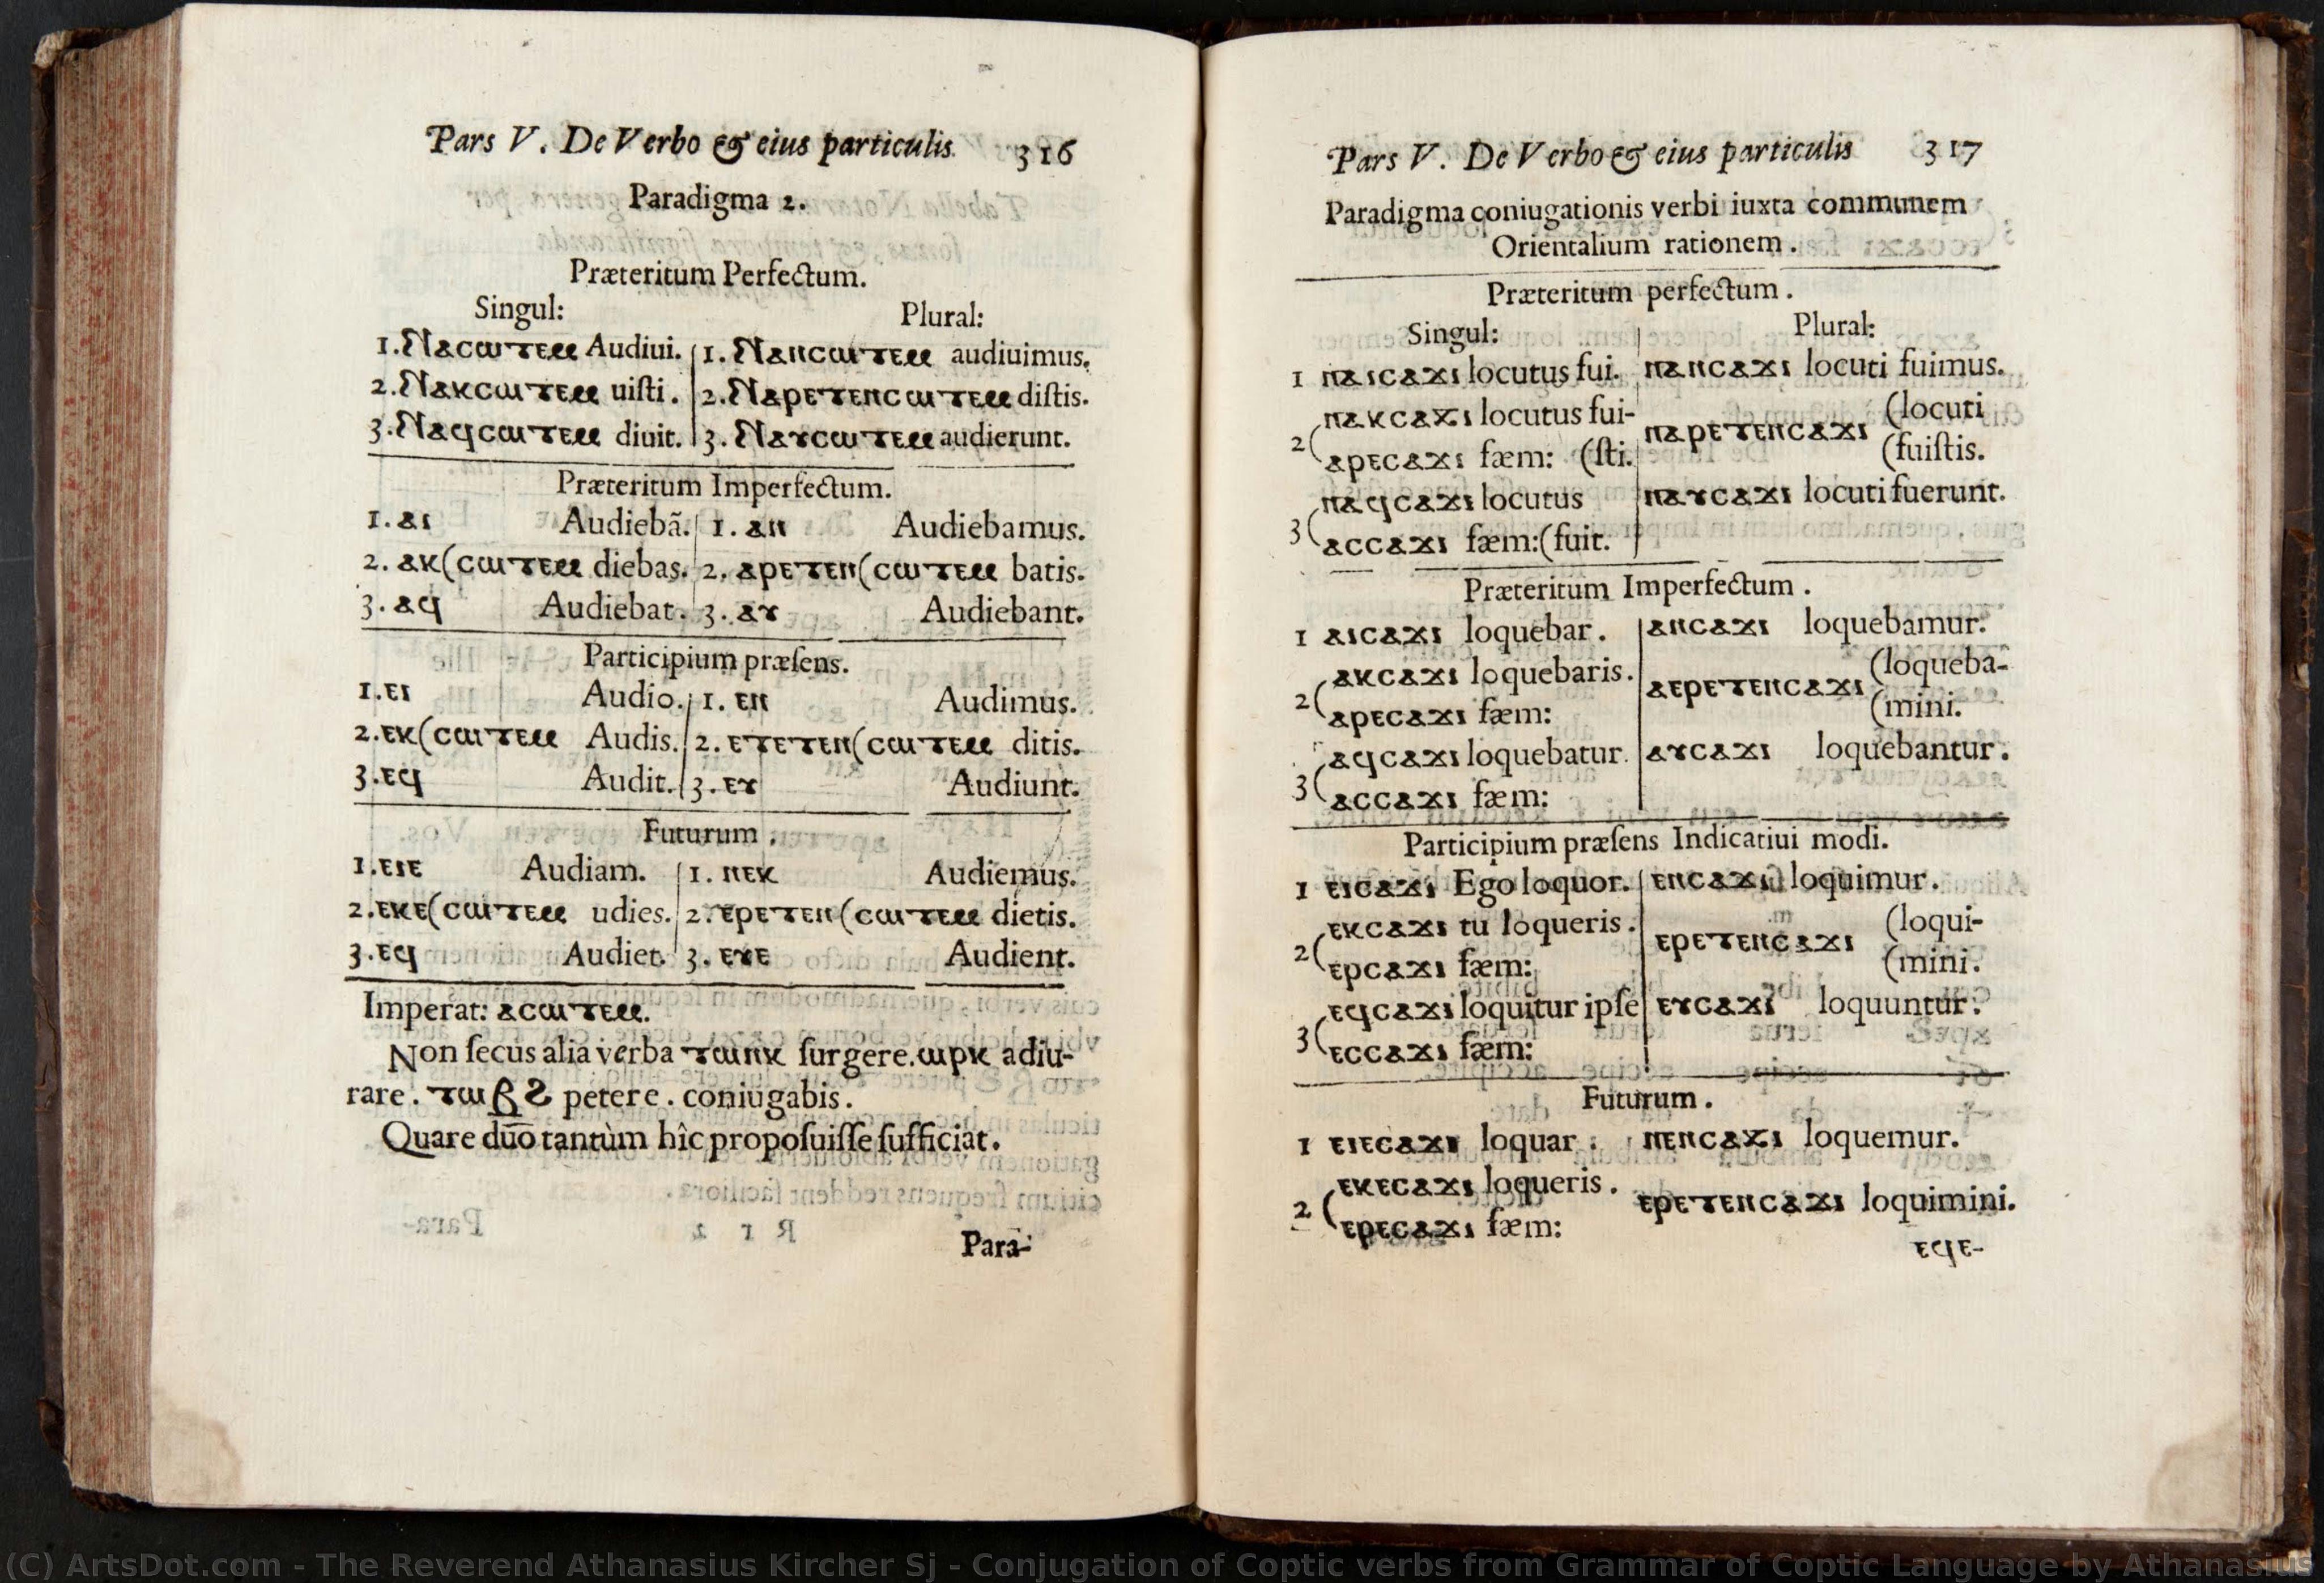 Pars V. De Verbo & eius particulis 316
Paradigma 2.
Præteritum Perfectum.
Singul: Plural:
1. Ⲛⲁⲥⲱⲧⲉⲙ Audiui. 1. Ⲛⲁⲛⲥⲱⲧⲉⲙ audiuimus.
2. Ⲛⲁⲕⲥⲱⲧⲉⲙ uiſti. 2. Ⲛⲁⲣⲉⲧⲉⲛⲥⲱⲧⲉⲙ diſtis.
3. Ⲛⲁϥⲥⲱⲧⲉⲙ diuit. 3. Ⲛⲁⲩⲥⲱⲧⲉⲙ audierunt.
Præteritum Imperfectum.
1. ⲁⲓ Audiebã. 1. ⲁⲛ Audiebamus.
2. ⲁⲕ(ⲥⲱⲧⲉⲙ diebas. 2. ⲁⲣⲉⲧⲉⲛ(ⲥⲱⲧⲉⲙ batis.
3. ⲁϥ Audiebat. 3. ⲁⲩ Audiebant.
Participium præſens.
1. ⲉⲓ Audio. 1. ⲉⲛ Audimus.
2. ⲉⲕ(ⲥⲱⲧⲉⲙ Audis. 2. ⲉⲧⲉⲧⲉⲛ(ⲥⲱⲧⲉⲙ ditis.
3. ⲉϥ Audit. 3. ⲉⲩ Audiunt.
Futurum.
1. ⲉⲓⲉ Audiam. 1. ⲛⲉⲕ Audiemus.
2. ⲉⲕⲉ(ⲥⲱⲧⲉⲙ udies. 2. ⲉⲣⲉⲧⲉⲛ(ⲥⲱⲧⲉⲙ dietis.
3. ⲉϥ Audiet. 3. ⲉⲩⲉ Audient.
Imperat: ⲁⲥⲱⲧⲉⲙ.
Non ſecus alia verba ⲧⲱⲛⲕ ſurgere. ⲱⲣⲕ adiu-
rare. ⲧⲱⲃϩ petere. coniugabis.
Quare duo tantùm hîc propoſuiſſe ſufficiat.
Para-
Pars V. De Verbo & eius particulis 317
Paradigma coniugationis verbi iuxta communem
Orientalium rationem.
Præteritum perfectum.
Singul: Plural:
1 ⲛⲁⲓⲥⲁϫⲓ locutus fui. ⲛⲁⲛⲥⲁϫⲓ locuti fuimus.
2 (ⲛⲁⲕⲥⲁϫⲓ locutus fui- ⲛⲁⲣⲉⲧⲉⲛⲥⲁϫⲓ (locuti
ⲁⲣⲉⲥⲁϫⲓ fæm: (ſti. (fuiſtis.
3 (ⲛⲁϥⲥⲁϫⲓ locutus ⲛⲁⲩⲥⲁϫⲓ locuti fuerunt.
ⲁⲥⲥⲁϫⲓ fæm:(fuit.
Præteritum Imperfectum.
1 ⲁⲓⲥⲁϫⲓ loquebar. ⲁⲛⲥⲁϫⲓ loquebamur.
2 (ⲁⲕⲥⲁϫⲓ loquebaris. ⲁⲉⲣⲉⲧⲉⲛⲥⲁϫⲓ (loqueba-
ⲁⲣⲉⲥⲁϫⲓ fæm: (mini.
3 (ⲁϥⲥⲁϫⲓ loquebatur. ⲁⲩⲥⲁϫⲓ loquebantur.
ⲁⲥⲥⲁϫⲓ fæm:
Participium præſens Indicatiui modi.
1 ⲉⲓⲥⲁϫⲓ Ego loquor. ⲉⲛⲥⲁϫⲓ loquimur.
2 (ⲉⲕⲥⲁϫⲓ tu loqueris. ⲉⲣⲉⲧⲉⲛⲥⲁϫⲓ (loqui-
ⲉⲣⲥⲁϫⲓ fæm: (mini.
3 (ⲉϥⲥⲁϫⲓ loquitur ipſe ⲉⲩⲥⲁϫⲓ loquuntur.
ⲉⲥⲥⲁϫⲓ fæm:
Futurum.
1 ⲉⲓⲉⲥⲁϫⲓ loquar. ⲛⲉⲛⲥⲁϫⲓ loquemur.
2 (ⲉⲕⲉⲥⲁϫⲓ loqueris. ⲉⲣⲉⲧⲉⲛⲥⲁϫⲓ loquimini.
ⲉⲣⲉⲥⲁϫⲓ fæm:
ⲉϥⲉ-
(C) ArtsDot.com - The Reverend Athanasius Kircher Sj - Conjugation of Coptic verbs from Grammar of Coptic Language by Athanasius